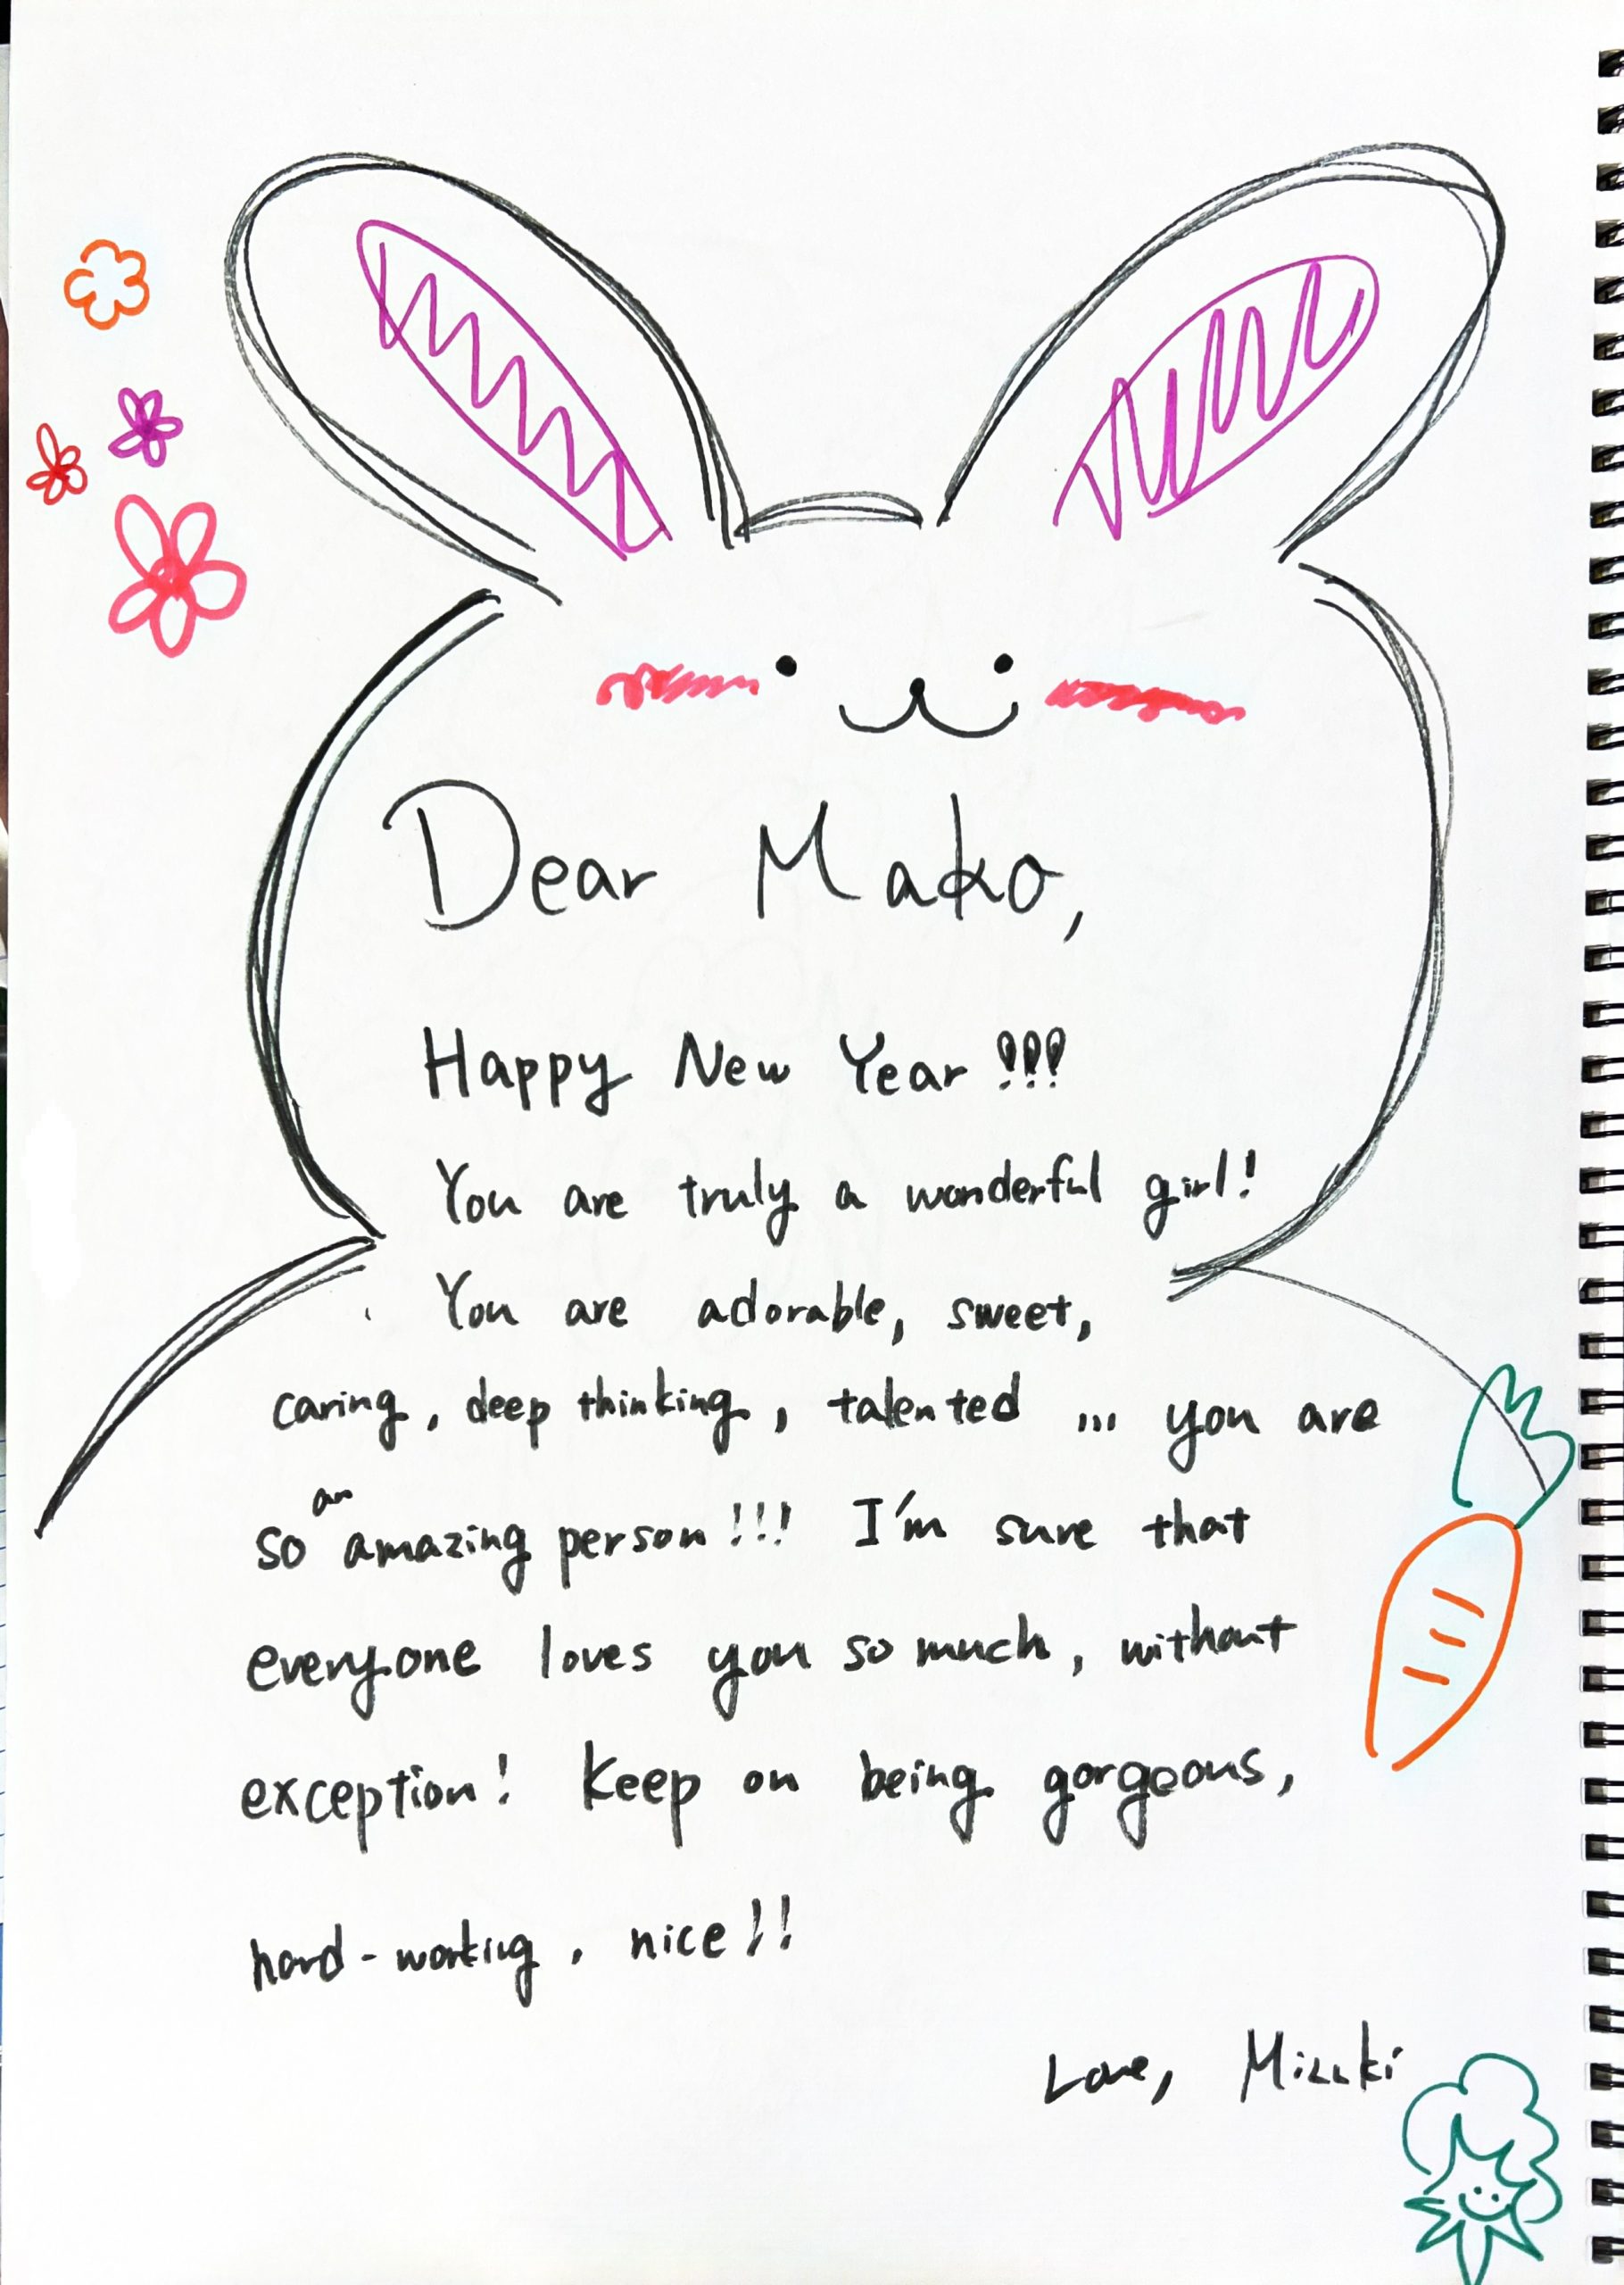 Dear Mako,
Happy New Year !!!
You are truly a wonderful girl!
You are adorable, sweet,
caring, deep thinking, talented ... you are
so an amazing person!!! I'm sure that
everyone loves you so much, without
exception! Keep on being gorgeous,
hard-working, nice!!
Love, Mizuki